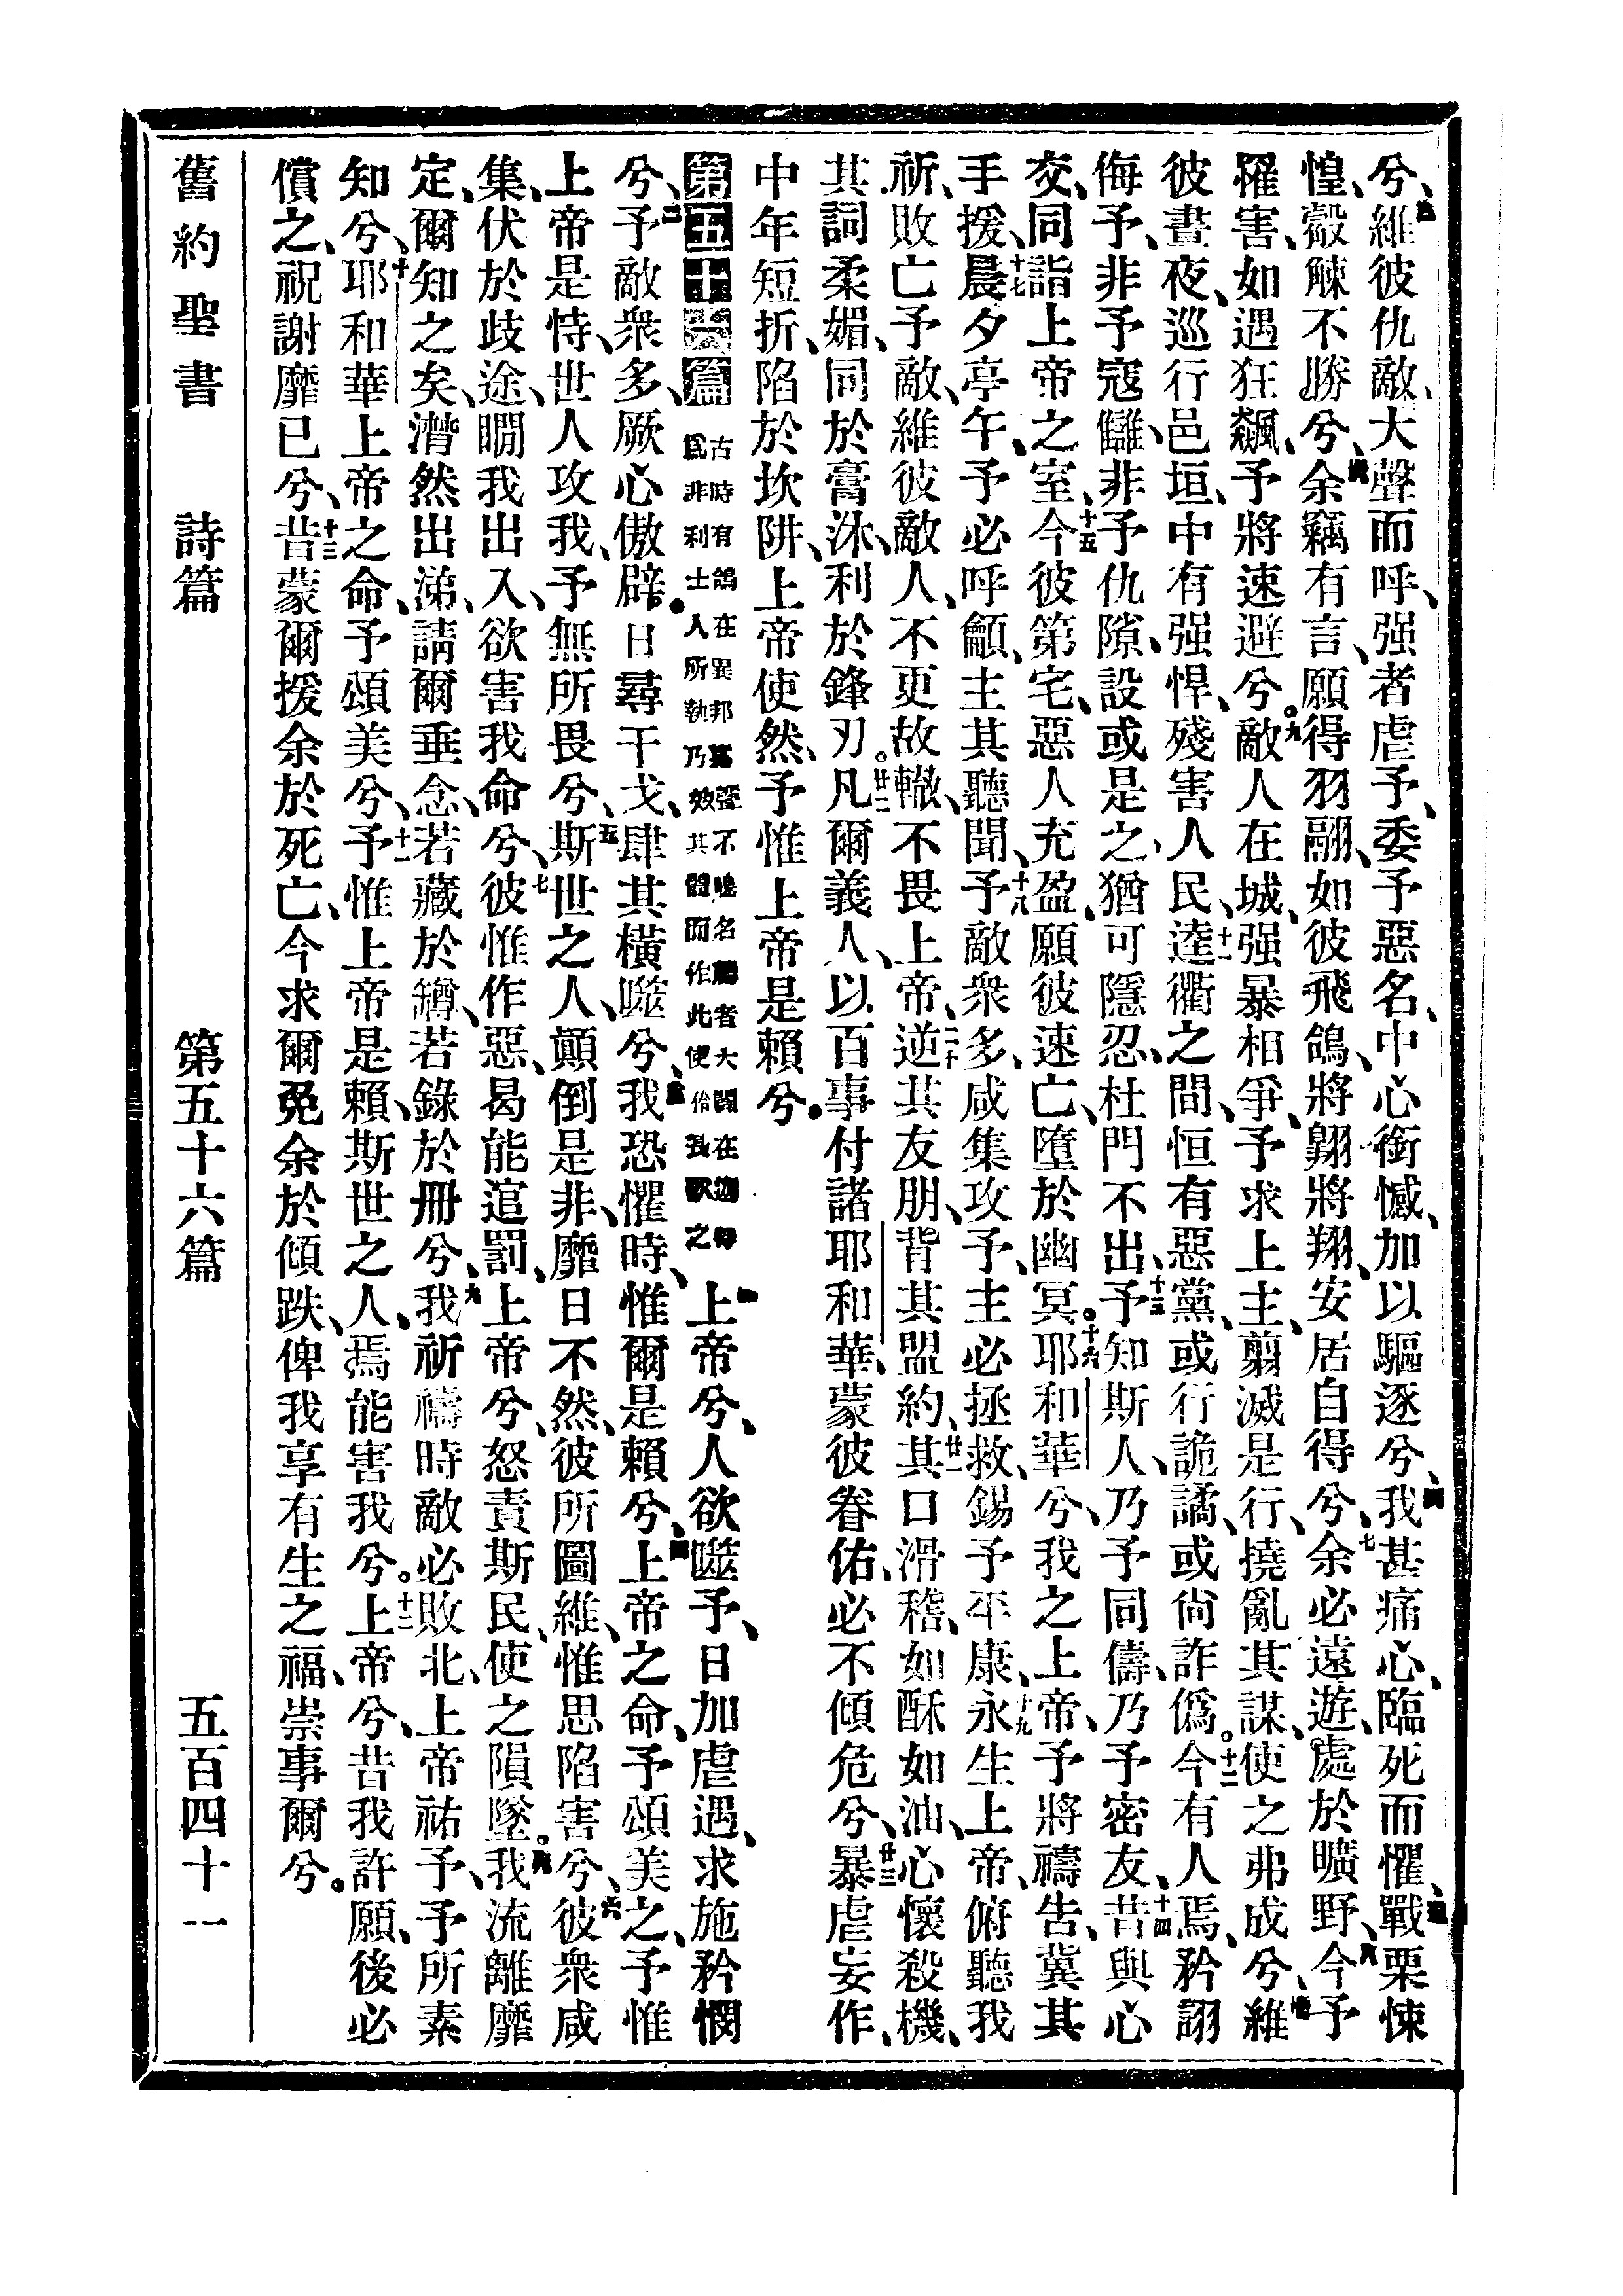 兮、三維彼仇敵、大聲而呼、强者虐予、委予惡名、中心銜憾、加以驅逐兮、四我甚痛心、臨死而懼、五戰栗悚
惶、觳觫不勝兮、六余竊有言、願得羽翮、如彼飛鴿、將翱將翔、安居自得兮、七余必遠遊、處於曠野、八今予
罹害、如遇狂飆、予將速避兮。九敵人在城、强暴相爭、予求上主、翦滅是行、撓亂其謀、使之弗成兮、十維
彼晝夜、巡行邑垣、中有强悍、殘害人民、十一逵衢之間、恒有惡黨、或行詭譎、或尙詐僞。十二今有人焉、矜詡
侮予、非予寇讎、非予仇隙、設或是之、猶可隱忍、杜門不出、十三予知斯人、乃予同儔、乃予密友、十四昔與心
交、同詣上帝之室、十五今彼第宅、惡人充盈、願彼速亡、墮於幽冥。十六耶和華兮、我之上帝、予將禱吿、冀其
手援、十七晨夕亭午、予必呼龥、主其聽聞、十八予敵衆多、咸集攻予、主必拯救、錫予平康、十九永生上帝、俯聽我
祈、敗亡予敵、維彼敵人、不更故轍、不畏上帝、二十逆其友朋、背其盟約、廿一其口滑稽、如酥如油、心懷殺機、
其詞柔媚、同於膏沐、利於鋒刃。廿二凡爾義人、以百事付諸耶和華、蒙彼眷佑、必不傾危兮、廿三暴虐妄作、
中年短折、陷於坎阱、上帝使然、予惟上帝是賴兮。
第五十六篇 古時有鴿在異邦寞聲不鳴名斯者大闢在迦得爲非利士人所執乃效其體而作此使伶長歌之 一上帝兮、人欲噬予、日加虐遇、求施矜憫
兮、二予敵衆多、厥心傲辟。日尋干戈、肆其橫噬兮、三我恐懼時、惟爾是賴兮、四上帝之命、予頌美之、予惟
上帝是恃、世人攻我、予無所畏兮、五斯世之人、顚倒是非、靡日不然、彼所圖維、惟思陷害兮、六彼衆咸
集、伏於歧途、瞯我出入、欲害我命兮、七彼惟作惡、曷能逭罰、上帝兮、怒責斯民、使之隕墜。八我流離靡
定、爾知之矣、潸然出涕、請爾垂念、若藏於罇、若錄於冊兮、九我祈禱時、敵必敗北、上帝祐予、予所素
知兮、十耶和華上帝之命、予頌美兮、十一予惟上帝是賴、斯世之人、焉能害我兮。十二上帝兮、昔我許願、後必
償之、祝謝靡已兮、十三昔蒙爾援余於死亡、今求爾免余於傾跌、俾我享有生之福、崇事爾兮。
舊約聖書 詩篇 第五十六篇 五百四十一